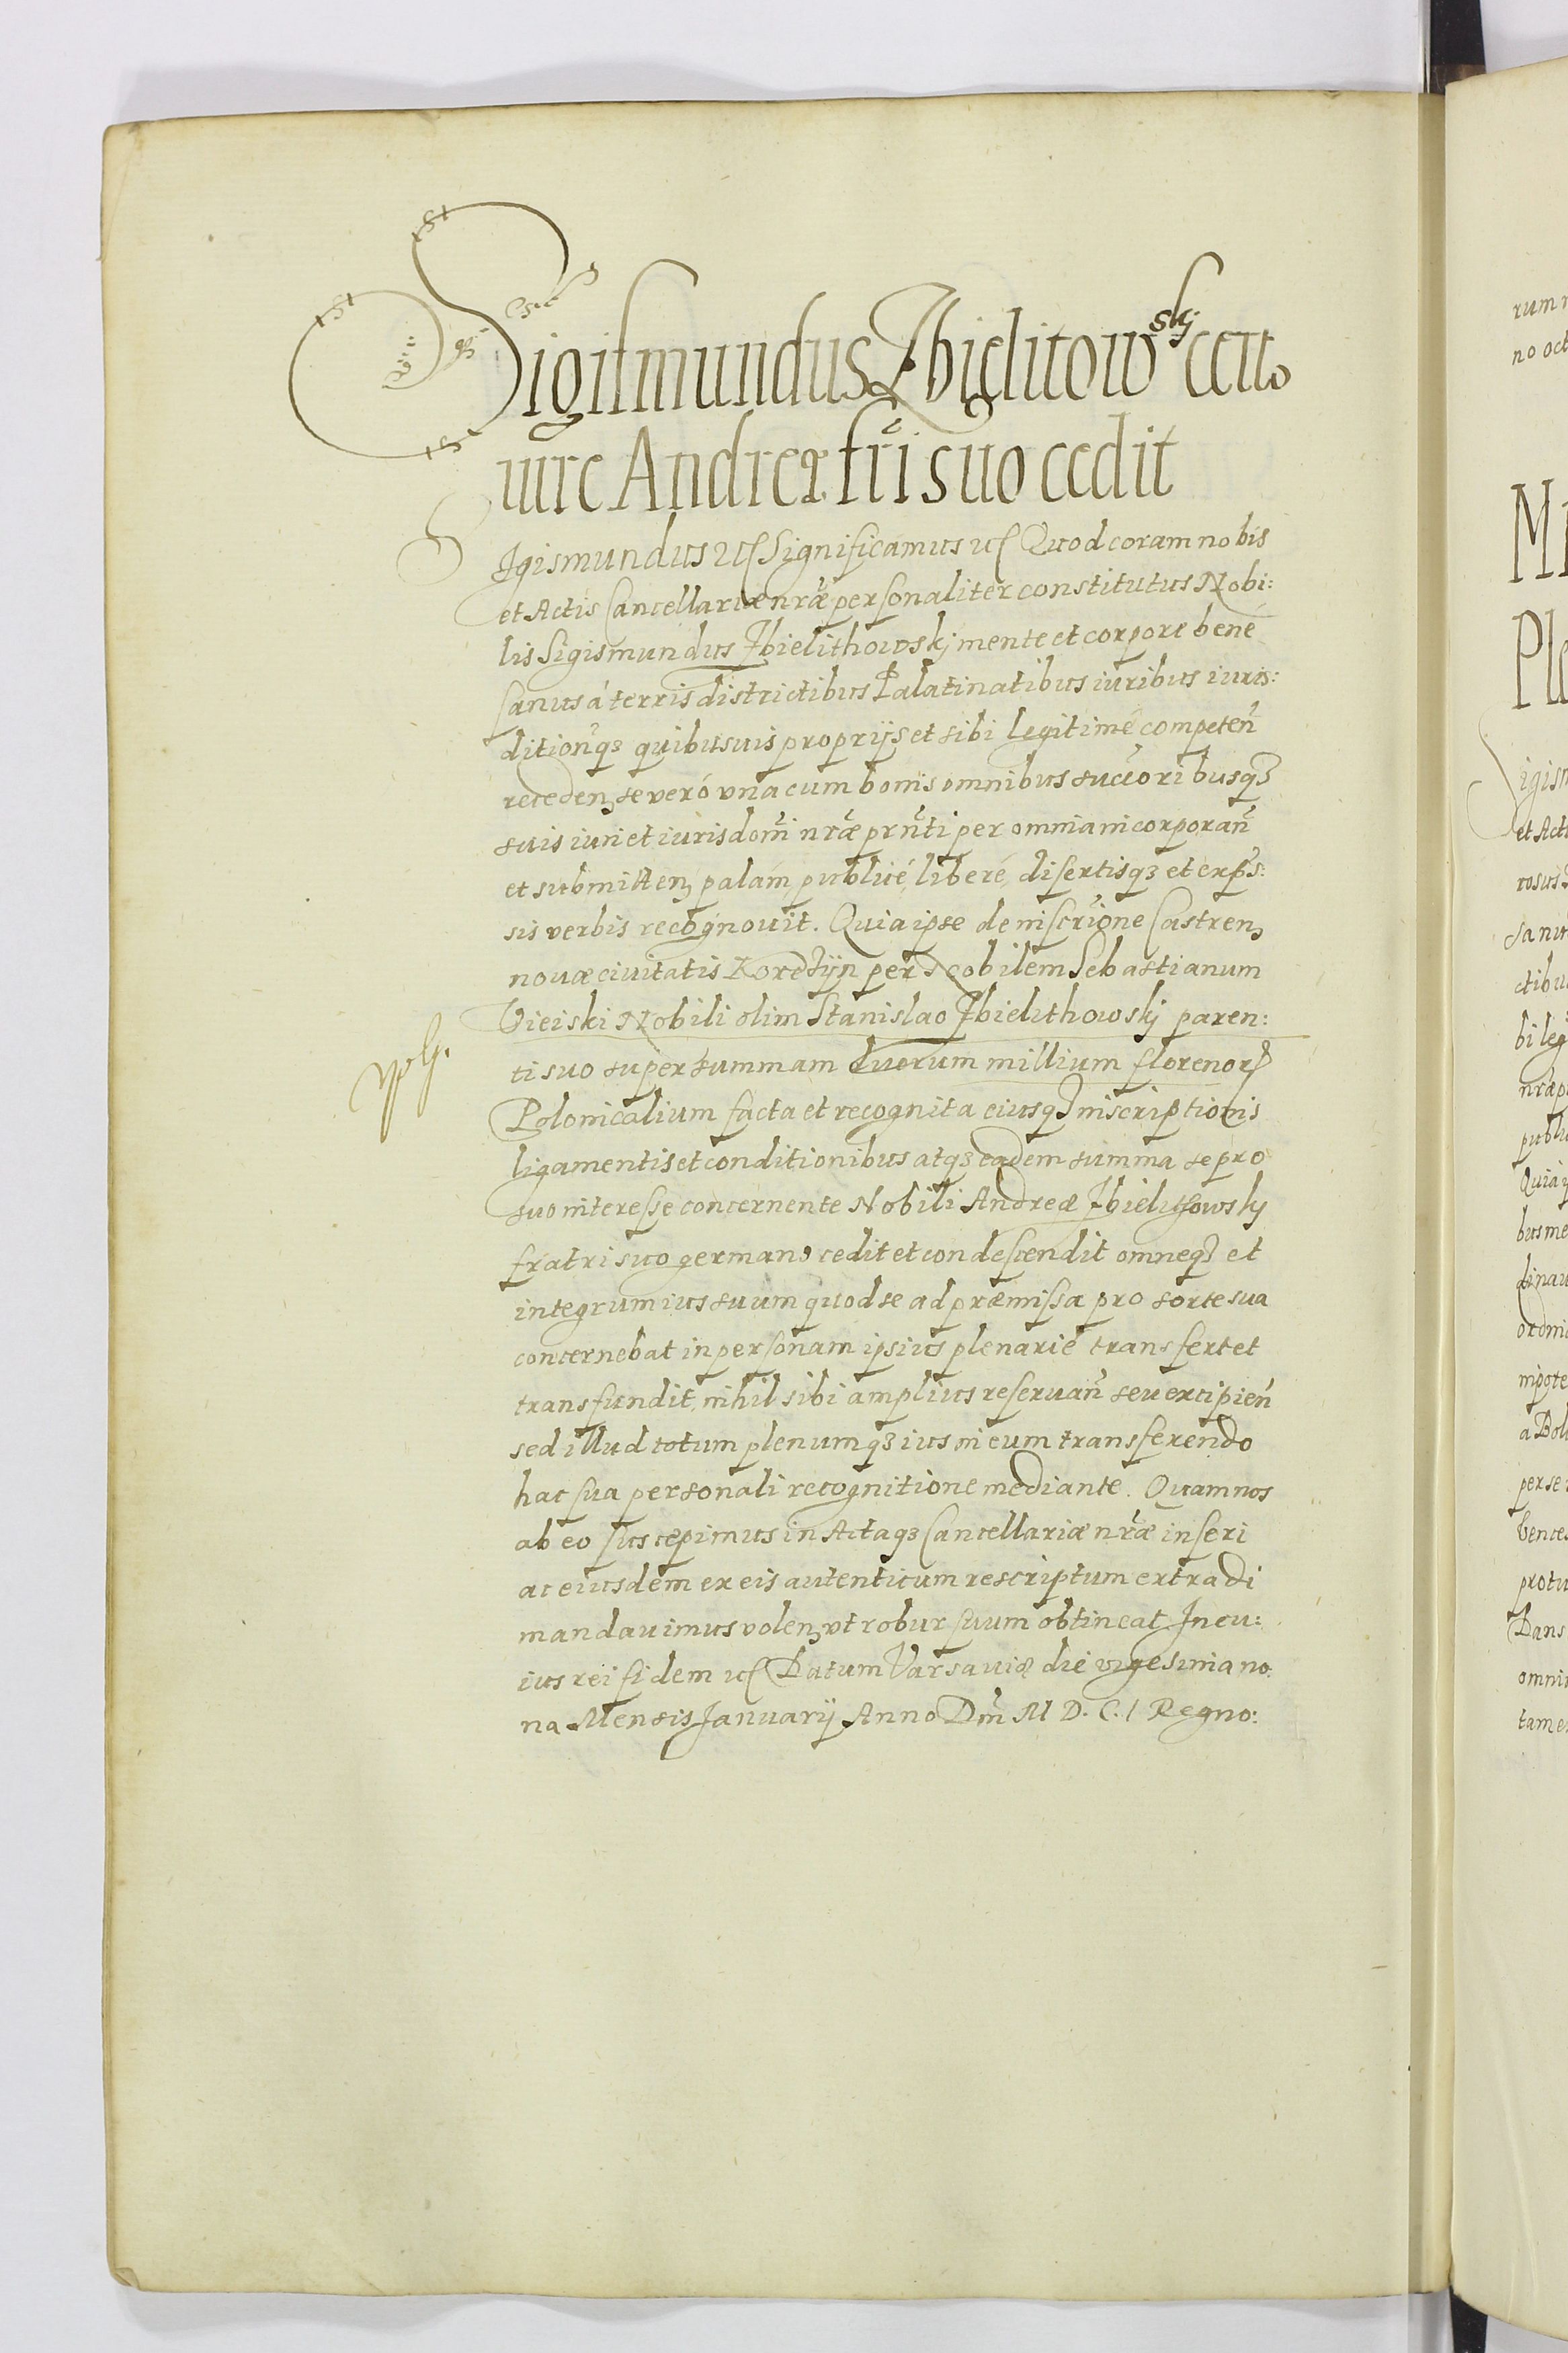 Sigismundus Zbielitowskj certo
iure Andreæ fr̃i suo cedit
Sigismundus etc Significamus etc Quod coram nobis
et Actis Cancellariæ nr̃æ personaliter constitutus Nobi:
lis Sigismundus Zbielithowskj mente et corpore bené
sanus á terris districtibus Palatinatibus iuribus iuris:
dition̄qꝫ quibusuis proprijs et sibi legitimé competen̄
recedenꝫ se veró vna cum bonis omnibus succ̃oribusqꝫ
suis iuri et iurisdom̃i nr̃æ prn̄ti per omnia incorporan̄
et submittenꝫ palám publicé, liberé, disertisqꝫ et exp̃s:
sis verbis recognouit. Quia ipse de inscr̃ione Castrenꝫ
nouæ ciuitatis Kordzÿn per Nobilem Sebastianum
Vieiski Nobili olim Stanislao Zbielithowskj paren:
ti suo super summam duorum millium florenoꝝ
Polonicalium facta et recognita eiusqꝫ inscriptionis
ligamentis et conditionibus atqꝫ eadem summa se pro
suo interesse concernente Nobili Andreæ Zbielithowskj
fratri suo germano cedit et condescendit omneqꝫ et
integrum ius suum quod se ad præmissa pro sorte sua
concernebat in personam ipsius plenarié transfert et
transfundit, nihil sibi amplius reseruan̄ seu excipien̄
sed illud totum plenumqꝫ ius in eum transferendo
hac sua personali recognitione mediante. Quam nos
ab eo suscepimus in Actaqꝫ Cancellariæ nr̃æ inseri
ac eiusdem ex eis autenticum rescriptum extradi
mandauimus volenꝫ vt robur suum obtineat In cu:
ius rei fidem etc Datum Varsauiæ die vigesima no:
na Mensis Januarij Anno Dn̄i M D. C. I Regno: